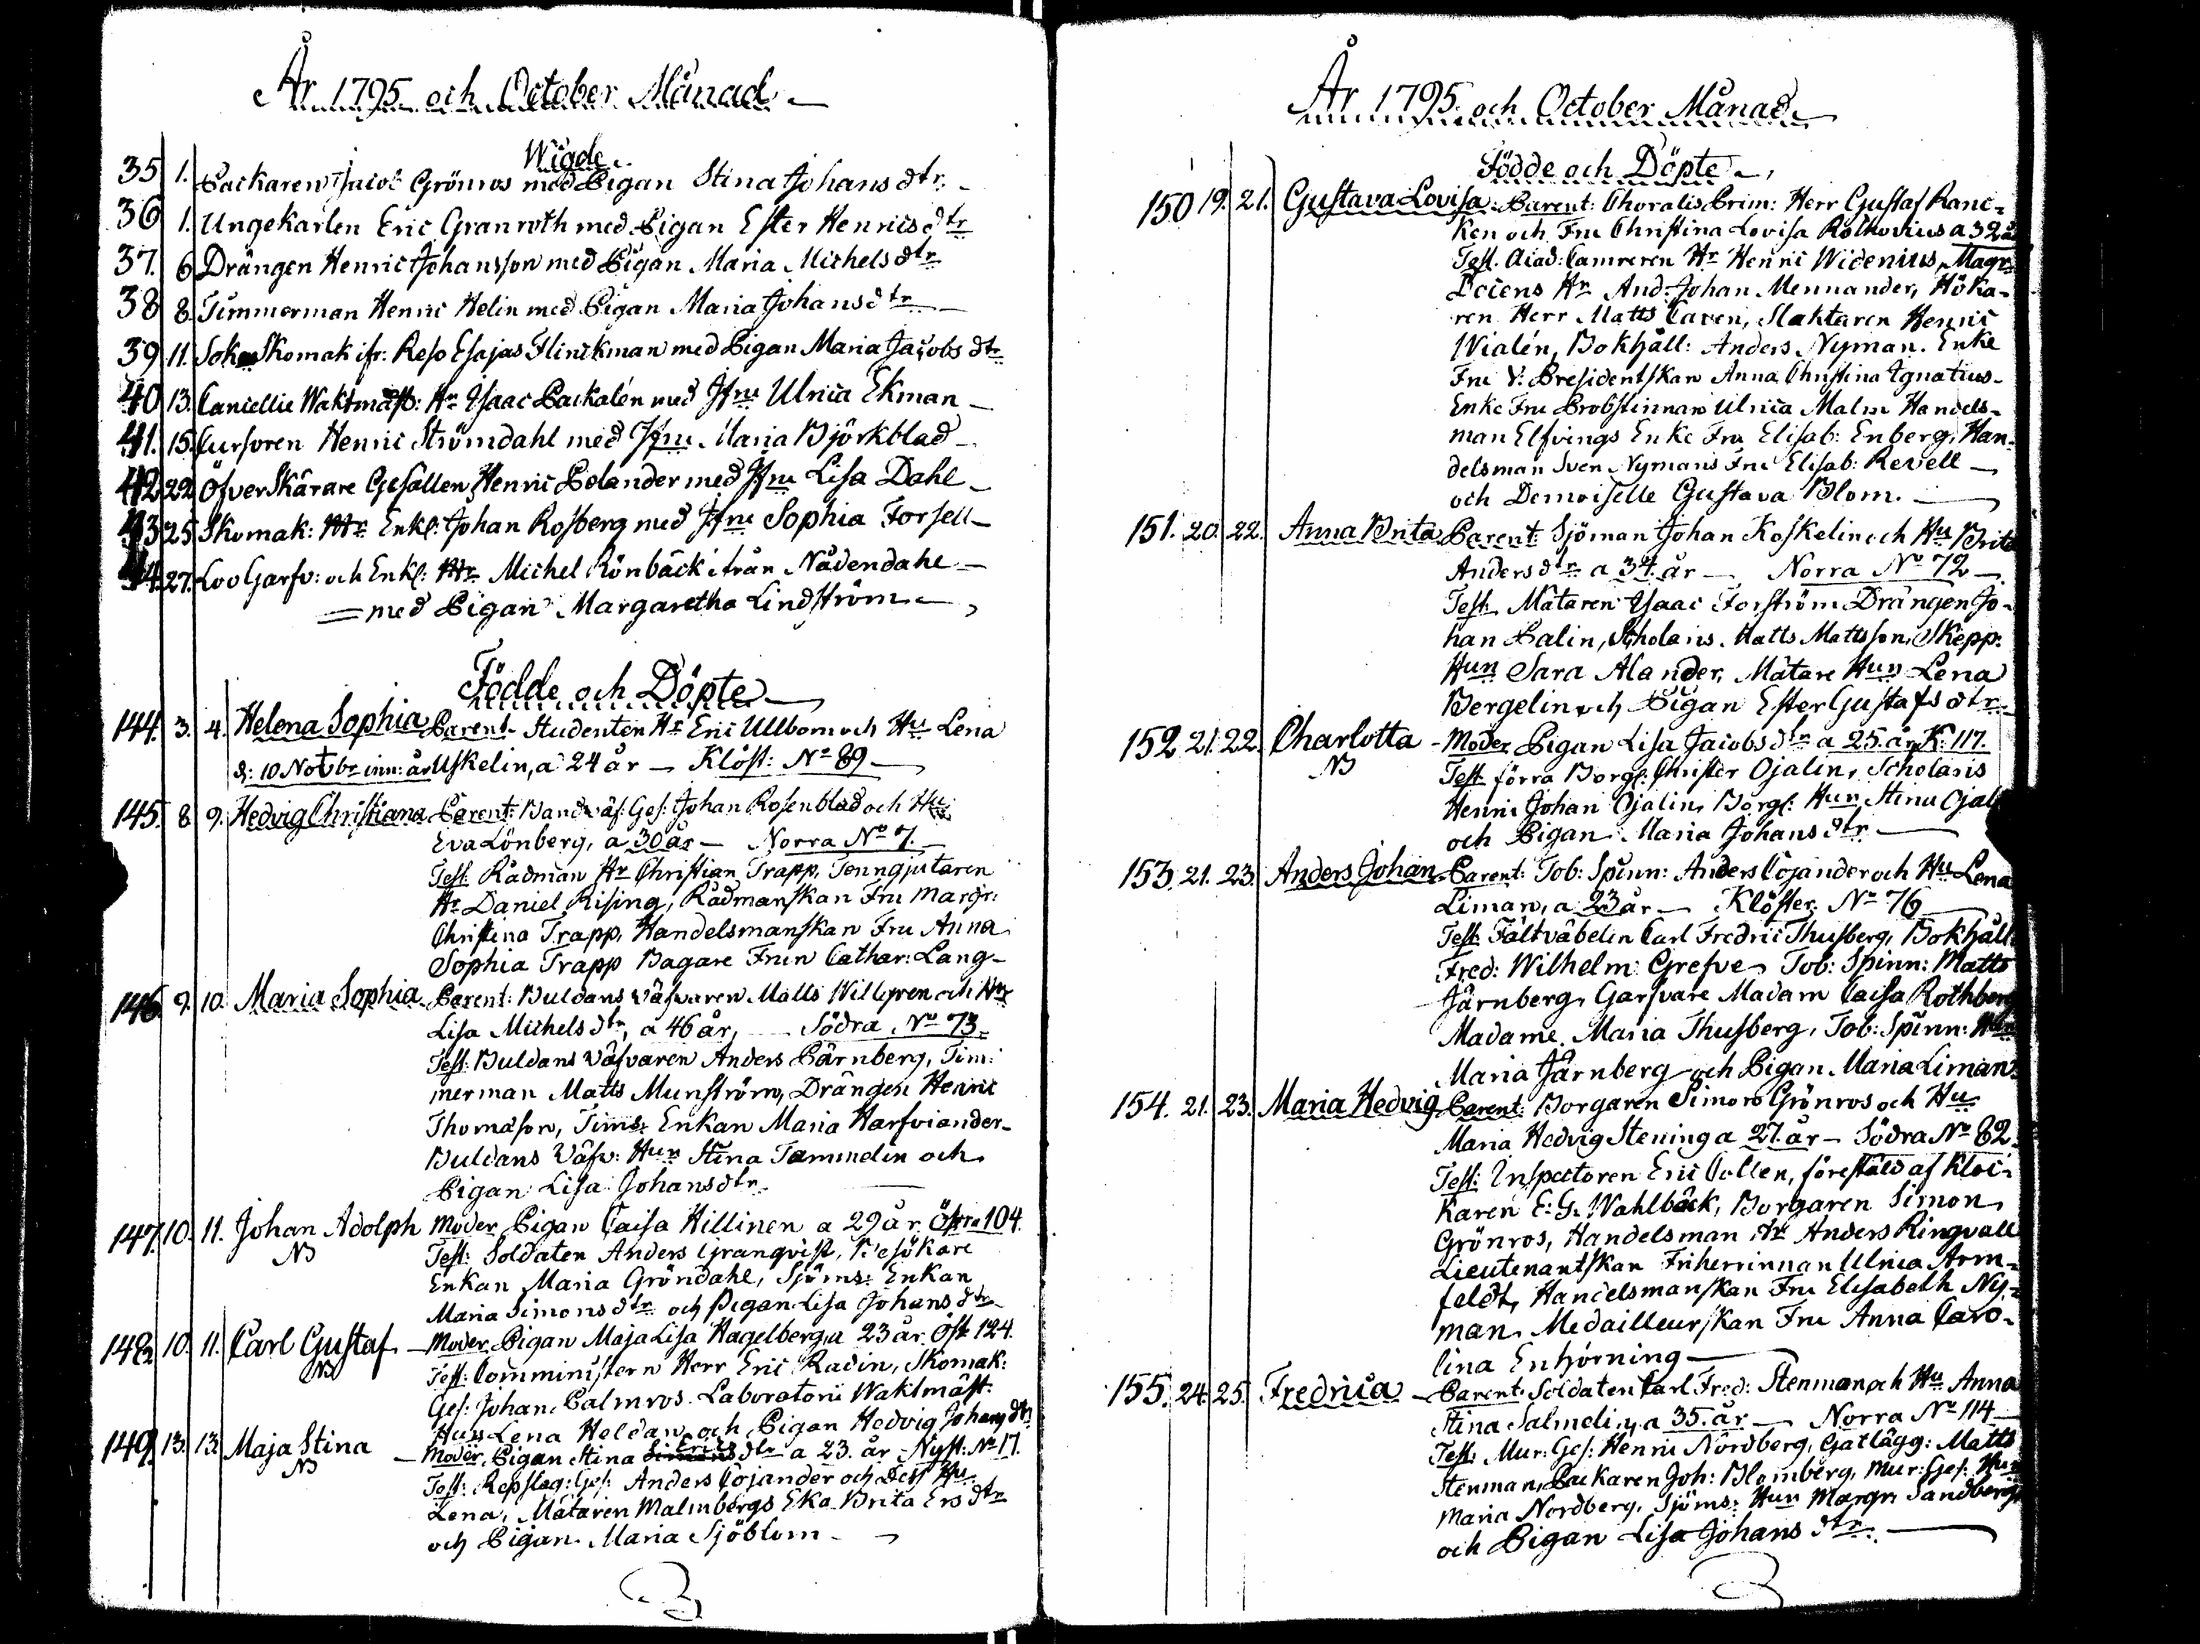 År 1795 och October Månad
Wigde
35 1. Packaren Jacob Grönros med Pigan Stina Johansdtr.
36 1. Ungekarlen Eric Granroth med Pigan Ester Henricsdtr
37. 6 Drängen Henric Johansson med Pigan Maria Michelsdtr
38 8 Timmerman Henric Helin med Pigan Maria Johansdtr
39 11. Skomak ifr: Reso Esajas Flinckman med Pigan Maria Jacobsdtr
40 13. Cancellie Waktmäst: Hr Isaac Packalén med Jfru Ulrica Ekman
41. 15. Cursoren Henric Strömdahl med Jfru Maria Björkblad
42 22 Öfverskärare Gesällen Henric Polander med Jfru Lisa Dahl
43 25 Skomak: Mr Enkl: Johan Rosberg med Jfru Sophia Forsell
44. 27. Loo Garfv: och Enkl: Mr Michel Rönbäck ifrån Nådendahl
med Pigan Margaretha Lindström
Födde och Döpte
144. 3. 4. Helena Sophia Parent. Studenten Hr Eric Ullbom och Hu Lena
d: 10 Novbr inn: år Uskelin, a 24 år Klöst: No 89
145. 8 9. Hedvig Christiana Parent: Bandväf: Ges: Johan Rosenblad och Hu
Eva Lönberg, a 30 år Norra No 7.
Test: Rådman Hr Christian Trapp, Tenngjutaren
Hr Daniel Rising, Rådmanskan Fru Margr:
Christina Trapp, Handelsmanskan Fru Anna
Sophia Trapp Bagare Frun Cathar: Lang
146 9. 10. Maria Sophia Parent: Buldans väfvaren Matts Willgren och Hu
Lisa Michelsdtr, a 46 år, Södra No 73
Test: Buldans väfvaren Anders Pärnberg, Tim:
merman Matts Munström, Drängen Henric
Thomasson, Tims: Enkan Maria Harfviander
Buldans Väfv: Hun Stina Tammelin och
Pigan Lisa Johansdtr
147 10. 11. Johan Adolph Moder Pigan Caisa Hillinen a 29 år. Östra 104.
NB Test: Soldaten Anders Granqvist, Besökare
Enkan Maria Gröndahl, Sjöms: Enkan
Maria Simonsdtr och Pigan Lisa Johansdtr
148 10. 11. Carl Gustaf Moder Pigan Maja Lisa Hagelberg, a 23 år. Öst 124.
NB Test: Comministern Herr Eric Radin, Skomak:
Ges: Johan Palmros. Laboratorii Waktmäst:
Hun Lena Heldan och Pigan Hedvig Johansdtr
149. 13. 13. Maja Stina Moder. Pigan Stina Ericsdtr a 23. år Nyst: No 17.
NB Test: Repslag: Ges: Anders Cojander och dess Hu
Lena, Mätaren Malmbergs Eka Brita Ersdtr
och Pigan Maria Sjöblom
År 1795 och October Månad
Födde och Döpte
150 19. 21. Gustava Lovisa Parent: Choralis Prim: Herr Gustaf Ranc=
ken och Fru Christina Lovisa Rothovius a 32 år
Test. Acad: Camreren Hr Henric Widenius, Magr
Docens Hr And: Johan Mennander, Höka=
ren Herr Matts Caren, Slaktaren Henric
Wialén, Bokhåll: Anders Nyman. Enke
Fru V: Presidentskan Anna Christina Ignatius
Enke Fru Probstinnan Ulrica Malm Handels=
man Elfvings Enke Fru Elisab: Enberg, Han=
delsman Sven Nymans Fru Elisab: Revell
och Demoiselle Gustava Blom.
151. 20. 22. Anna Brita Parent: Sjöman Johan Koskelin och Hu Brita
Andersdtr a 34 år Norra No 72
Test: Mätaren Isaac Forström Drängen Jo=
han Palin, Scholaris. Matts Mattsson, Skepp:
Hun Sara Alander, Mätare Hun Lena
Bergelin och Pigan Ester Gustafsdtr
152 21. 22. Charlotta Moder Pigan Lisa Jacobsdtr a 25. år K: 117.
NB Test förra Borg: Christer Ojalin, Scholaris
Henric Johan Ojalin, Borg: Hun Stina Ojal
och Pigan Maria Johansdtr
153. 21. 23. Anders Johan Parent: Tob: Spinn: Anders Cojander och Hu Lena
Liman, a 23 år Klöster No 76
Test: Fältväbeln Carl Fredric Thusberg, Bokhåll
Fred: Wilhelm Grefve, Tob: Spinn: Matts
Järnberg, Garfvare Madam Caisa Rothberg
Madame Maria Thusberg, Tob: Spinn: Hun
Maria Järnberg och Pigan Maria Liman
154. 21. 23. Maria Hedvig Parent: Borgaren Simon Grönros och Hu
Maria Hedvig Stening a 27. år Södra No 82
Test: Inspectoren Eric Collen, förestäld af Kloc=
karen E: G: Wahlbäck, Borgaren Simon
Grönros, Handelsman Hr Anders Ringvall
Lieutenantskan Friherrinnan Ulrica Arm=
feldt, Handelsmanskan Fru Elisabeth Ny=
man. Medailleurskan Fru Anna Caro=
lina Enhörning
155. 24. 25. Fredrica Parent: Soldaten Carl Fred: Stenman och Hu Anna
Stina Salmelin, a 35. år Norra No 114
Test: Mur: Ges: Henric Nordberg, Gatlägg: Matts
Stenman, Packaren Joh: Blomberg, Mur: Ges: Hun
Maria Nordberg, Sjöms: Hun Margr: Sandberg
och Pigan Lisa Johansdtr.